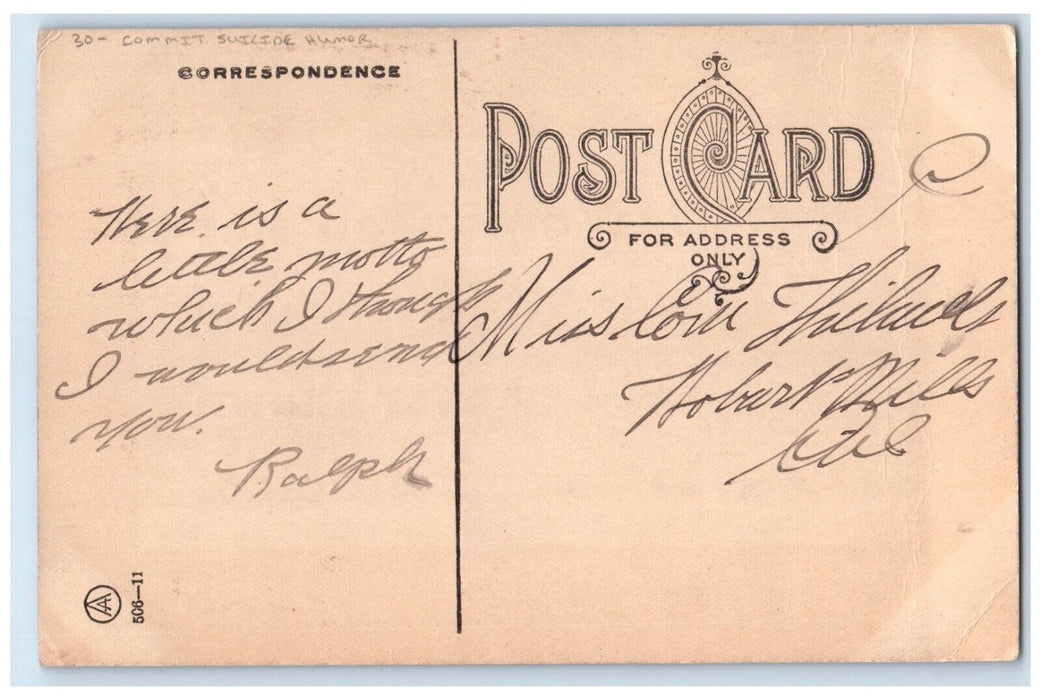 30- COMMIT SUICIDE HUMOR
CORRESPONDENCE
Here is a
little motto
which I though
I would send
you.
Ralph
AA
506—11
POST CARD
FOR ADDRESS
ONLY
Miss
Hobart Mills
Cal